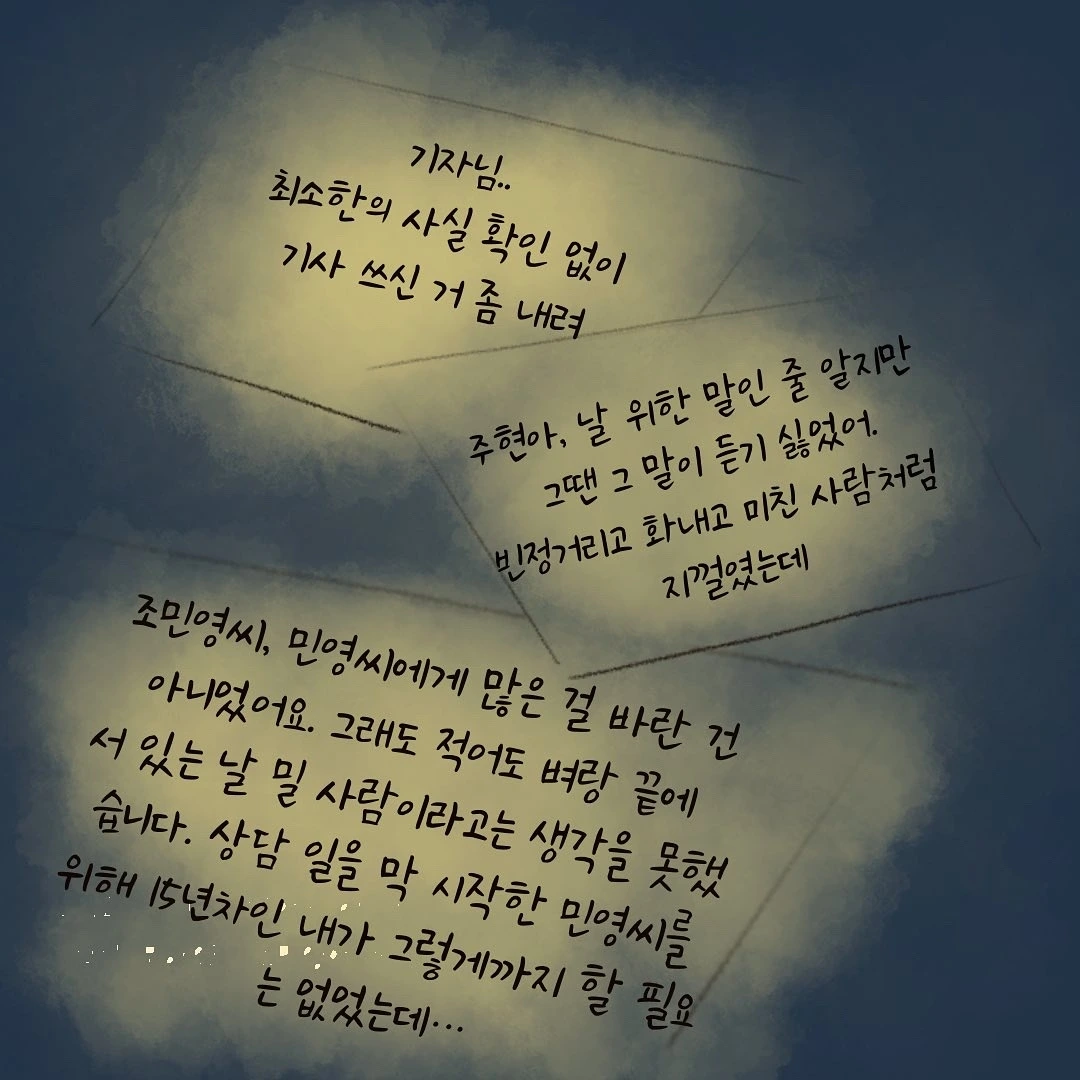 기자님..
최소한의 사실 확인 없이
기사 쓰신 거 좀 내려
주현아, 날 위한 말인 줄 알지만
그땐 그 말이 듣기 싫었어.
빈정거리고 화내고 미친 사람처럼
지껄였는데
조민영씨, 민영씨에게 많은 걸 바란 건
아니었어요. 그래도 적어도 벼랑 끝에
서 있는 날 밀 사람이라고는 생각을 못했
습니다. 상담 일을 막 시작한 민영씨를
위해 15년차인 내가 그렇게까지 할 필요
는 없었는데...